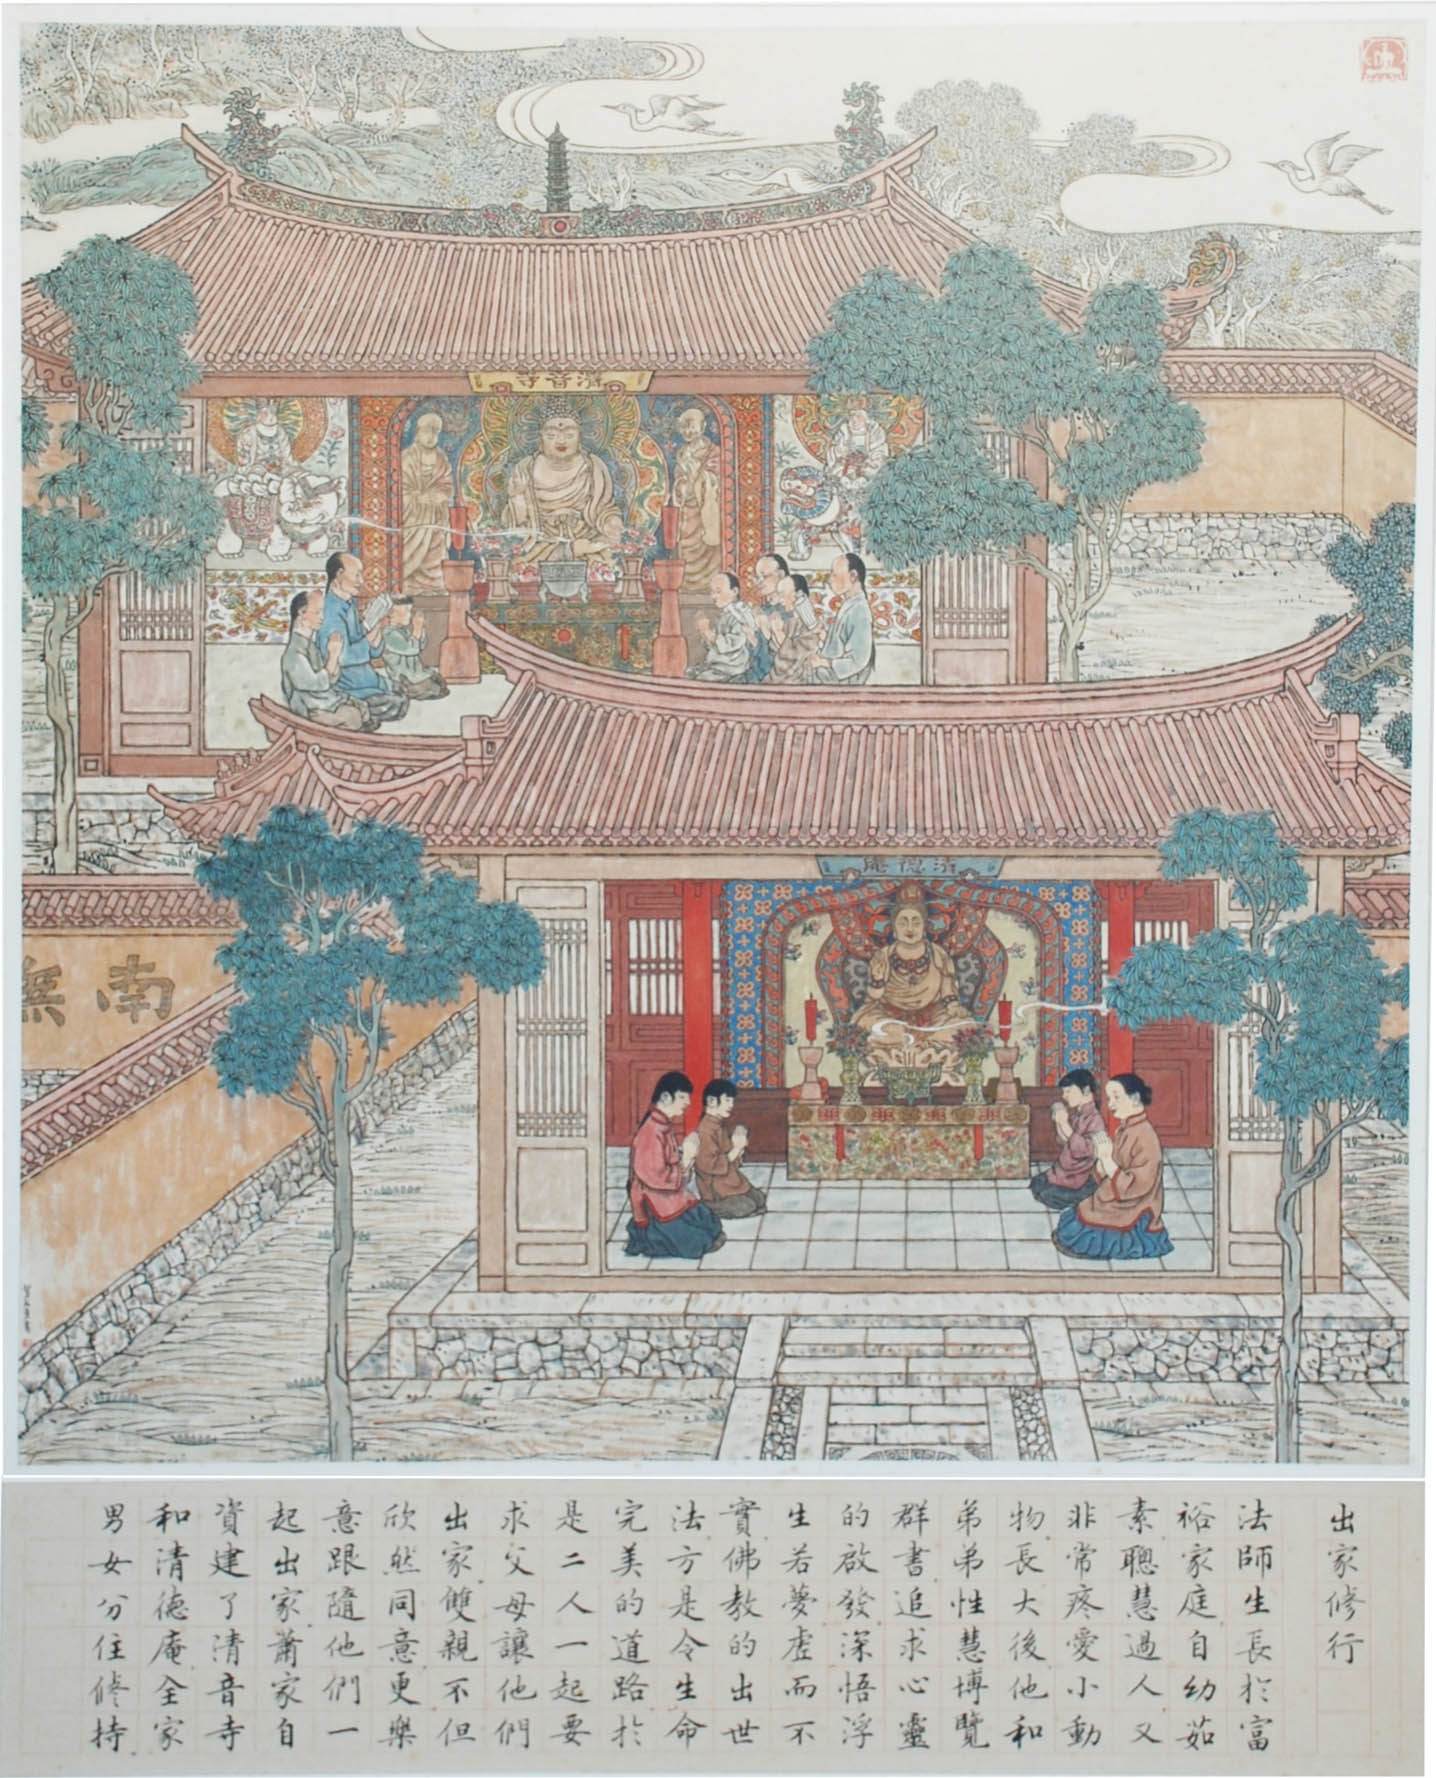 清音寺
清德庵
南無
出家修行
法師生長於富
裕家庭自幼茹
素聰慧過人又
非常疼愛小動
物長大後他和
弟弟性慧博覽
群書追求心靈
的啟發深悟浮
生若夢虛而不
實佛教的出世
法方是令生命
完美的道路於
是二人一起要
求父母讓他們
出家雙親不但
欣然同意更樂
意跟隨他們一
起出家蕭家自
資建了清音寺
和清德庵全家
男女分住修持